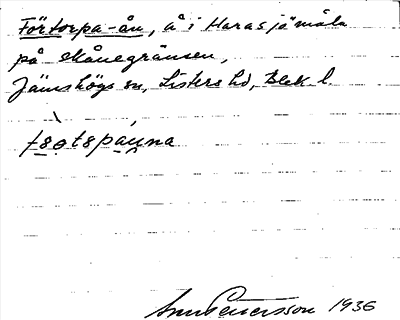 Förtorpa-ån, å i Harasjömåla
på skånegränsen,
Jämshögs sn, Listers hd, Blek. l.
Pettersson 1936